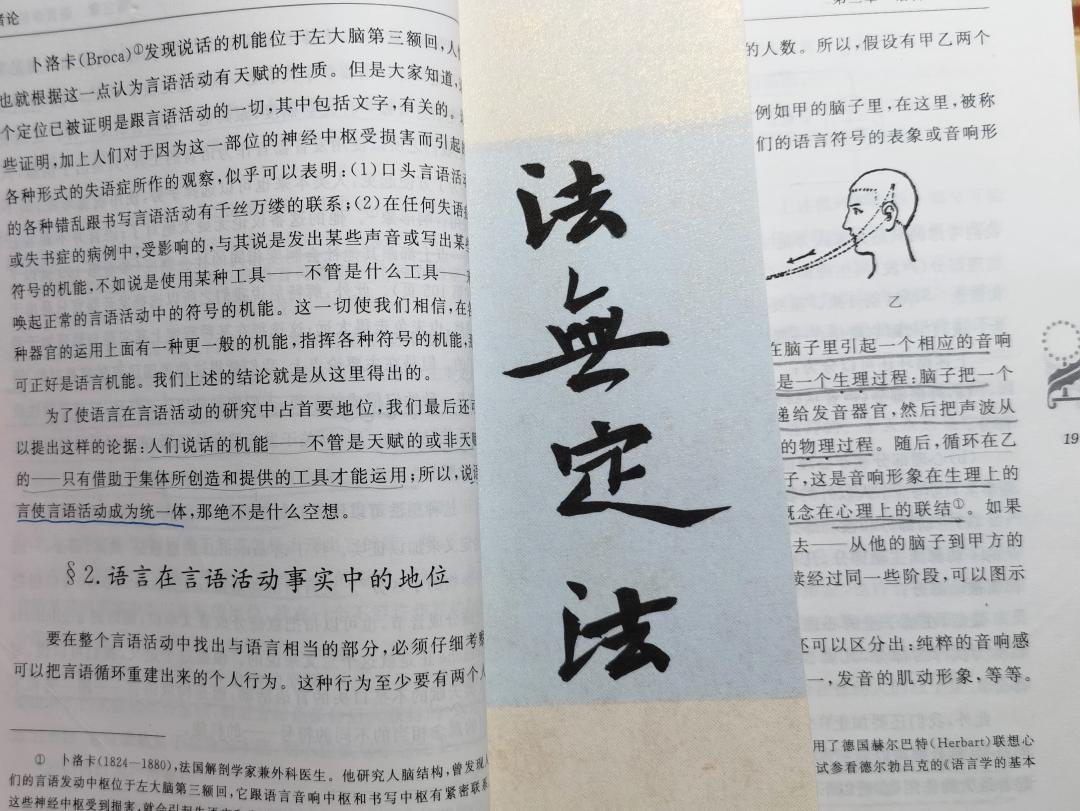 绪论
卜洛卡(Broca)①发现说话的机能位于左大脑第三额回,人
也就根据这一点认为言语活动有天赋的性质。但是大家知道,
个定位已被证明是跟言语活动的一切,其中包括文字,有关的。
些证明,加上人们对于因为这一部位的神经中枢受损害而引起
各种形式的失语症所作的观察,似乎可以表明:(1)口头言语活
的各种错乱跟书写言语活动有千丝万缕的联系;(2)在任何失语
或失书症的病例中,受影响的,与其说是发出某些声音或写出某
符号的机能,不如说是使用某种工具——不管是什么工具——
唤起正常的言语活动中的符号的机能。这一切使我们相信,在
种器官的运用上面有一种更一般的机能,指挥各种符号的机能,
可正好是语言机能。我们上述的结论就是从这里得出的。
为了使语言在言语活动的研究中占首要地位,我们最后还
以提出这样的论据:人们说话的机能——不管是天赋的或非天
的——只有借助于集体所创造和提供的工具才能运用;所以,说
言使言语活动成为统一体,那绝不是什么空想。
§2.语言在言语活动事实中的地位
要在整个言语活动中找出与语言相当的部分,必须仔细考
可以把言语循环重建出来的个人行为。这种行为至少要有两个
① 卜洛卡(1824—1880),法国解剖学家兼外科医生。他研究人脑结构,曾发现
们的言语发动中枢位于左大脑第三额回,它跟语言音响中枢和书写中枢有紧密联
这些神经中枢受到损害,就会引起
法
無
定
法
的人数。所以,假设有甲乙两个
例如甲的脑子里,在这里,被称
们的语言符号的表象或音响形
乙
在脑子里引起一个相应的音响
是一个生理过程:脑子把一个
递给发音器官,然后把声波从
的物理过程。随后,循环在乙
子,这是音响形象在生理上的
概念在心理上的联结①。如果
去——从他的脑子到甲方的
续经过同一些阶段,可以图示
还可以区分出:纯粹的音响感
一,发音的肌动形象,等等。
用了德国赫尔巴特(Herbart)联想心
试参看德尔勃吕克的《语言学的基本
19